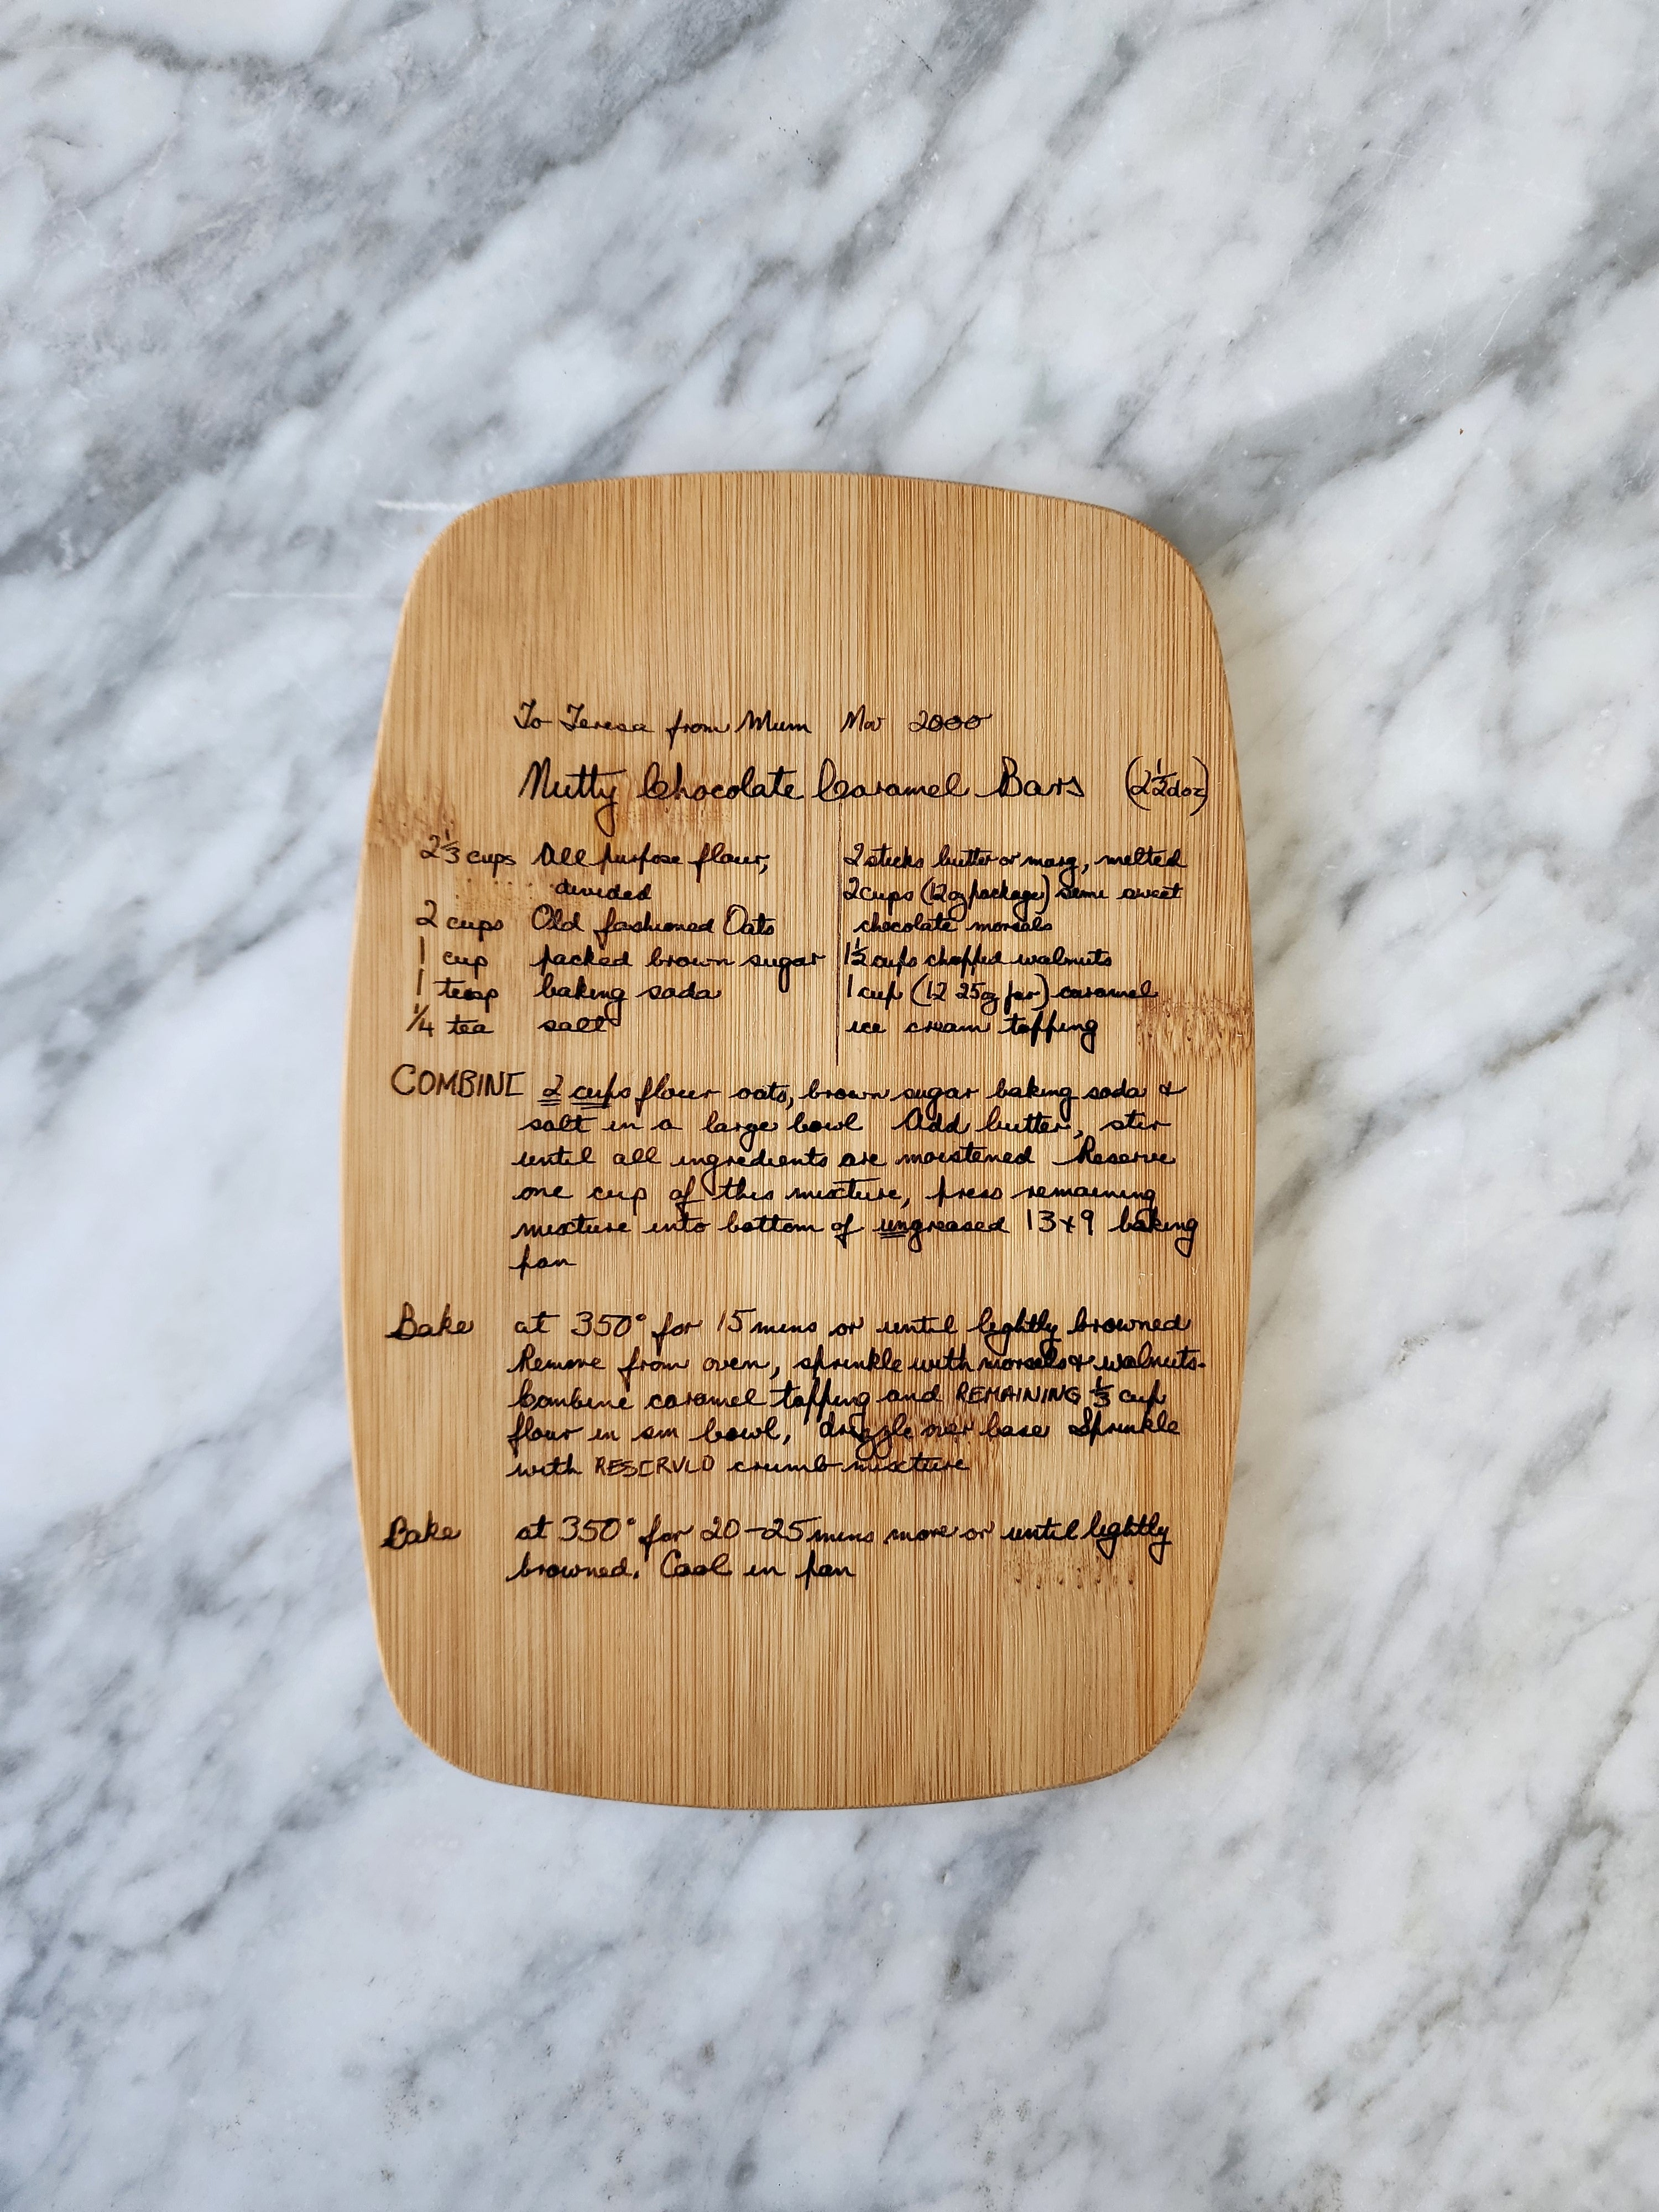 To Teresa from Mum Mar 2000
Nutty Chocolate Caramel Bars (2½ doz)
2⅓ cups All purpose flour,
divided
2 cups Old fashioned Oats
1 cup packed brown sugar
1 teasp baking soda
¼ tea salt
2 sticks butter or marg, melted
2 cups (12 oz package) semi sweet
chocolate morsels
1½ cups chopped walnuts
1 cup (12 25 oz jar) caramel
ice cream topping
COMBINE 2 cups flour oats, brown sugar baking soda &
salt in a large bowl Add butter, stir
until all ingredients are moistened Reserve
one cup of this mixture, press remaining
mixture into bottom of ungreased 13x9 baking
pan
Bake at 350° for 15 mins or until lightly browned
Remove from oven, sprinkle with morsels & walnuts.
Combine caramel topping and REMAINING ⅓ cup
flour in sm bowl, drizzle over base Sprinkle
with RESERVED crumb mixture
Bake at 350° for 20-25 mins more or until lightly
browned. Cool in pan